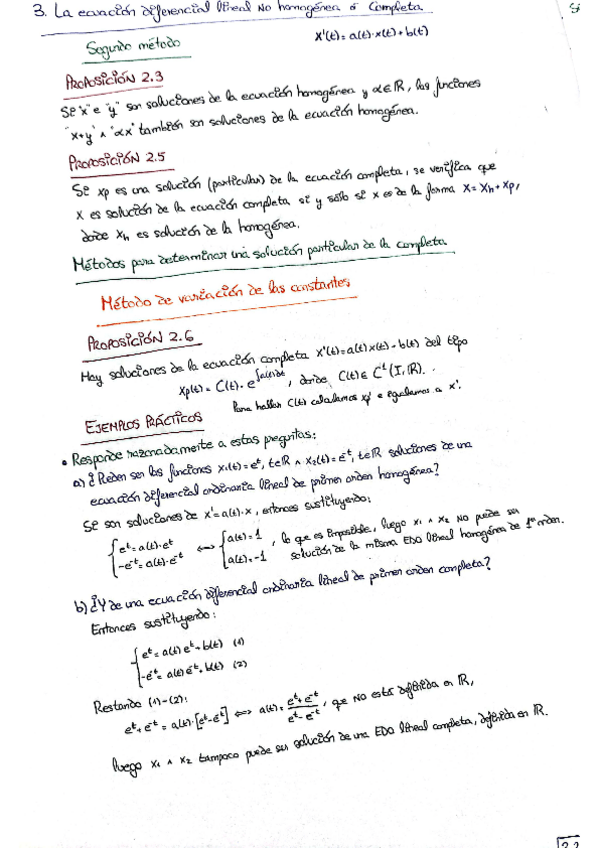 3. La ecuación diferencial lineal No homogénea ó Completa
x'(t)=a(t)·x(t)+b(t)
Segundo método
PROPOSICIÓN 2.3
Si "x" e "y" son soluciones de la ecuación homogénea y α∈ℝ, las funciones
"x+y" ∧ "αx" también son soluciones de la ecuación homogénea.
PROPOSICIÓN 2.5
Si xp es una solución (particular) de la ecuación completa, se verifica que
x es solución de la ecuación completa si y sólo si x es de la forma x=xh+xp,
donde xh es solución de la homogénea.
Métodos para determinar una solución particular de la completa
Método de variación de las constantes
PROPOSICIÓN 2.6
Hay soluciones de la ecuación completa x'(t)=a(t)x(t)+b(t) del tipo
xp(t)= C(t)·e^∫a(t)dt, donde C(t)∈ C¹(I,ℝ).
Para hallar C(t) calculamos xp' e igualamos a x'.
EJEMPLOS PRÁCTICOS
• Responde razonadamente a estas preguntas:
a) ¿Pueden ser las funciones x₁(t)=e^t, t∈ℝ ∧ x₂(t)=e^-t, t∈ℝ soluciones de una
ecuación diferencial ordinaria lineal de primer orden homogénea?
Si son soluciones de x'=a(t)·x, entonces sustituyendo:
{ e^t=a(t)·e^t ⟺ { a(t)=1 , lo que es imposible, luego x₁ ∧ x₂ NO puede ser
-e^-t=a(t)·e^-t a(t)=-1 solución de la misma EDO lineal homogénea de 1º orden.
b) ¿Y de una ecuación diferencial ordinaria lineal de primer orden completa?
Entonces sustituyendo:
{ e^t=a(t)e^t+b(t) (1)
-e^-t=a(t)e^-t+b(t) (2)
Restando (1)-(2):
e^t+e^-t=a(t)·[e^t-e^-t] ⟺ a(t)= (e^t+e^-t)/(e^t-e^-t), que NO está definida en ℝ,
luego x₁ ∧ x₂ tampoco puede ser solución de una EDO lineal completa, definida en ℝ.